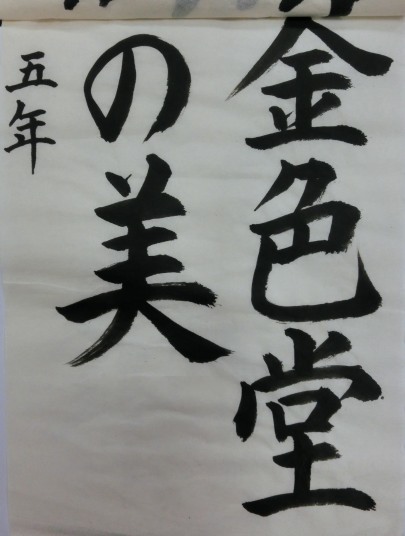 金色堂
の美
五年